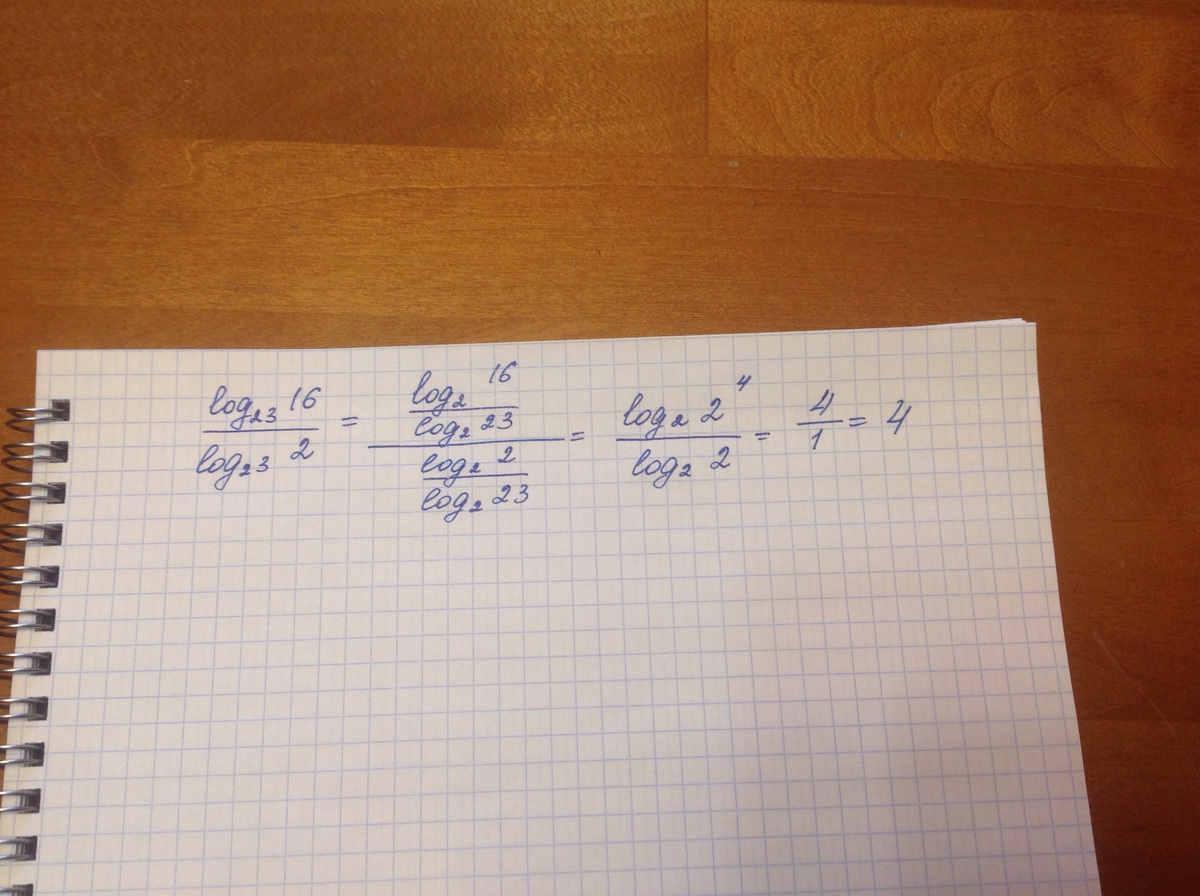 log₂₃ 16 / log₂₃ 2 = (log₂ 16 / log₂ 23) / (log₂ 2 / log₂ 23) = log₂ 2⁴ / log₂ 2 = 4/1 = 4